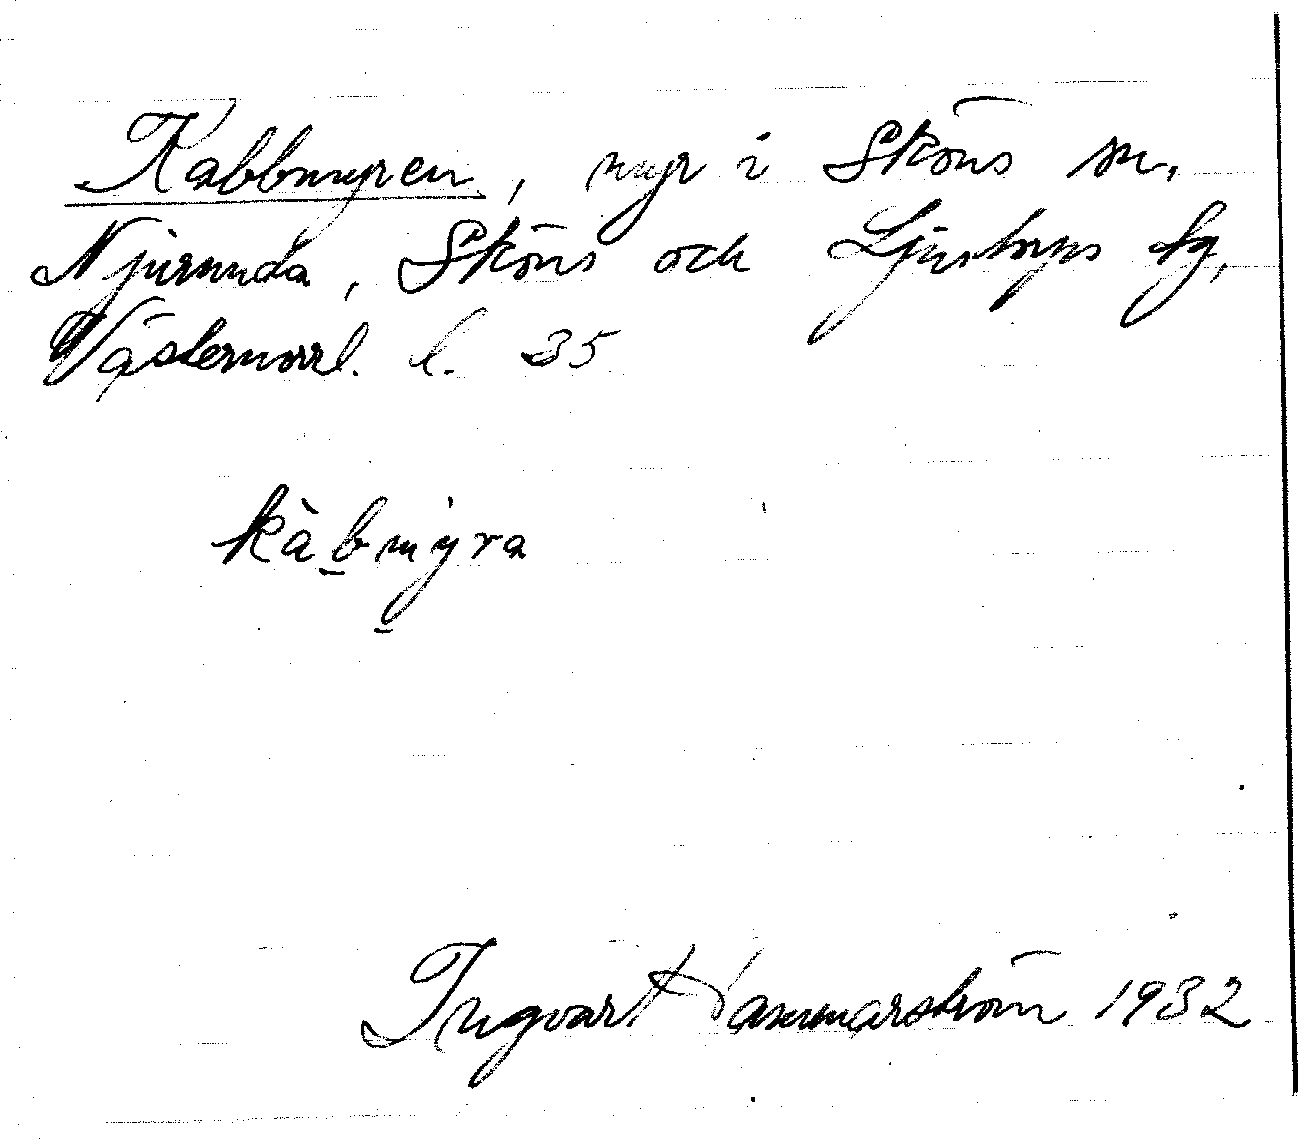 Kabbmyren, myr i Sköns sn,
Njurunda, Sköns och Ljustorps tg,
Västernorrl. l. 35
kàb̲mýra
Ingvar Hammarström 1932